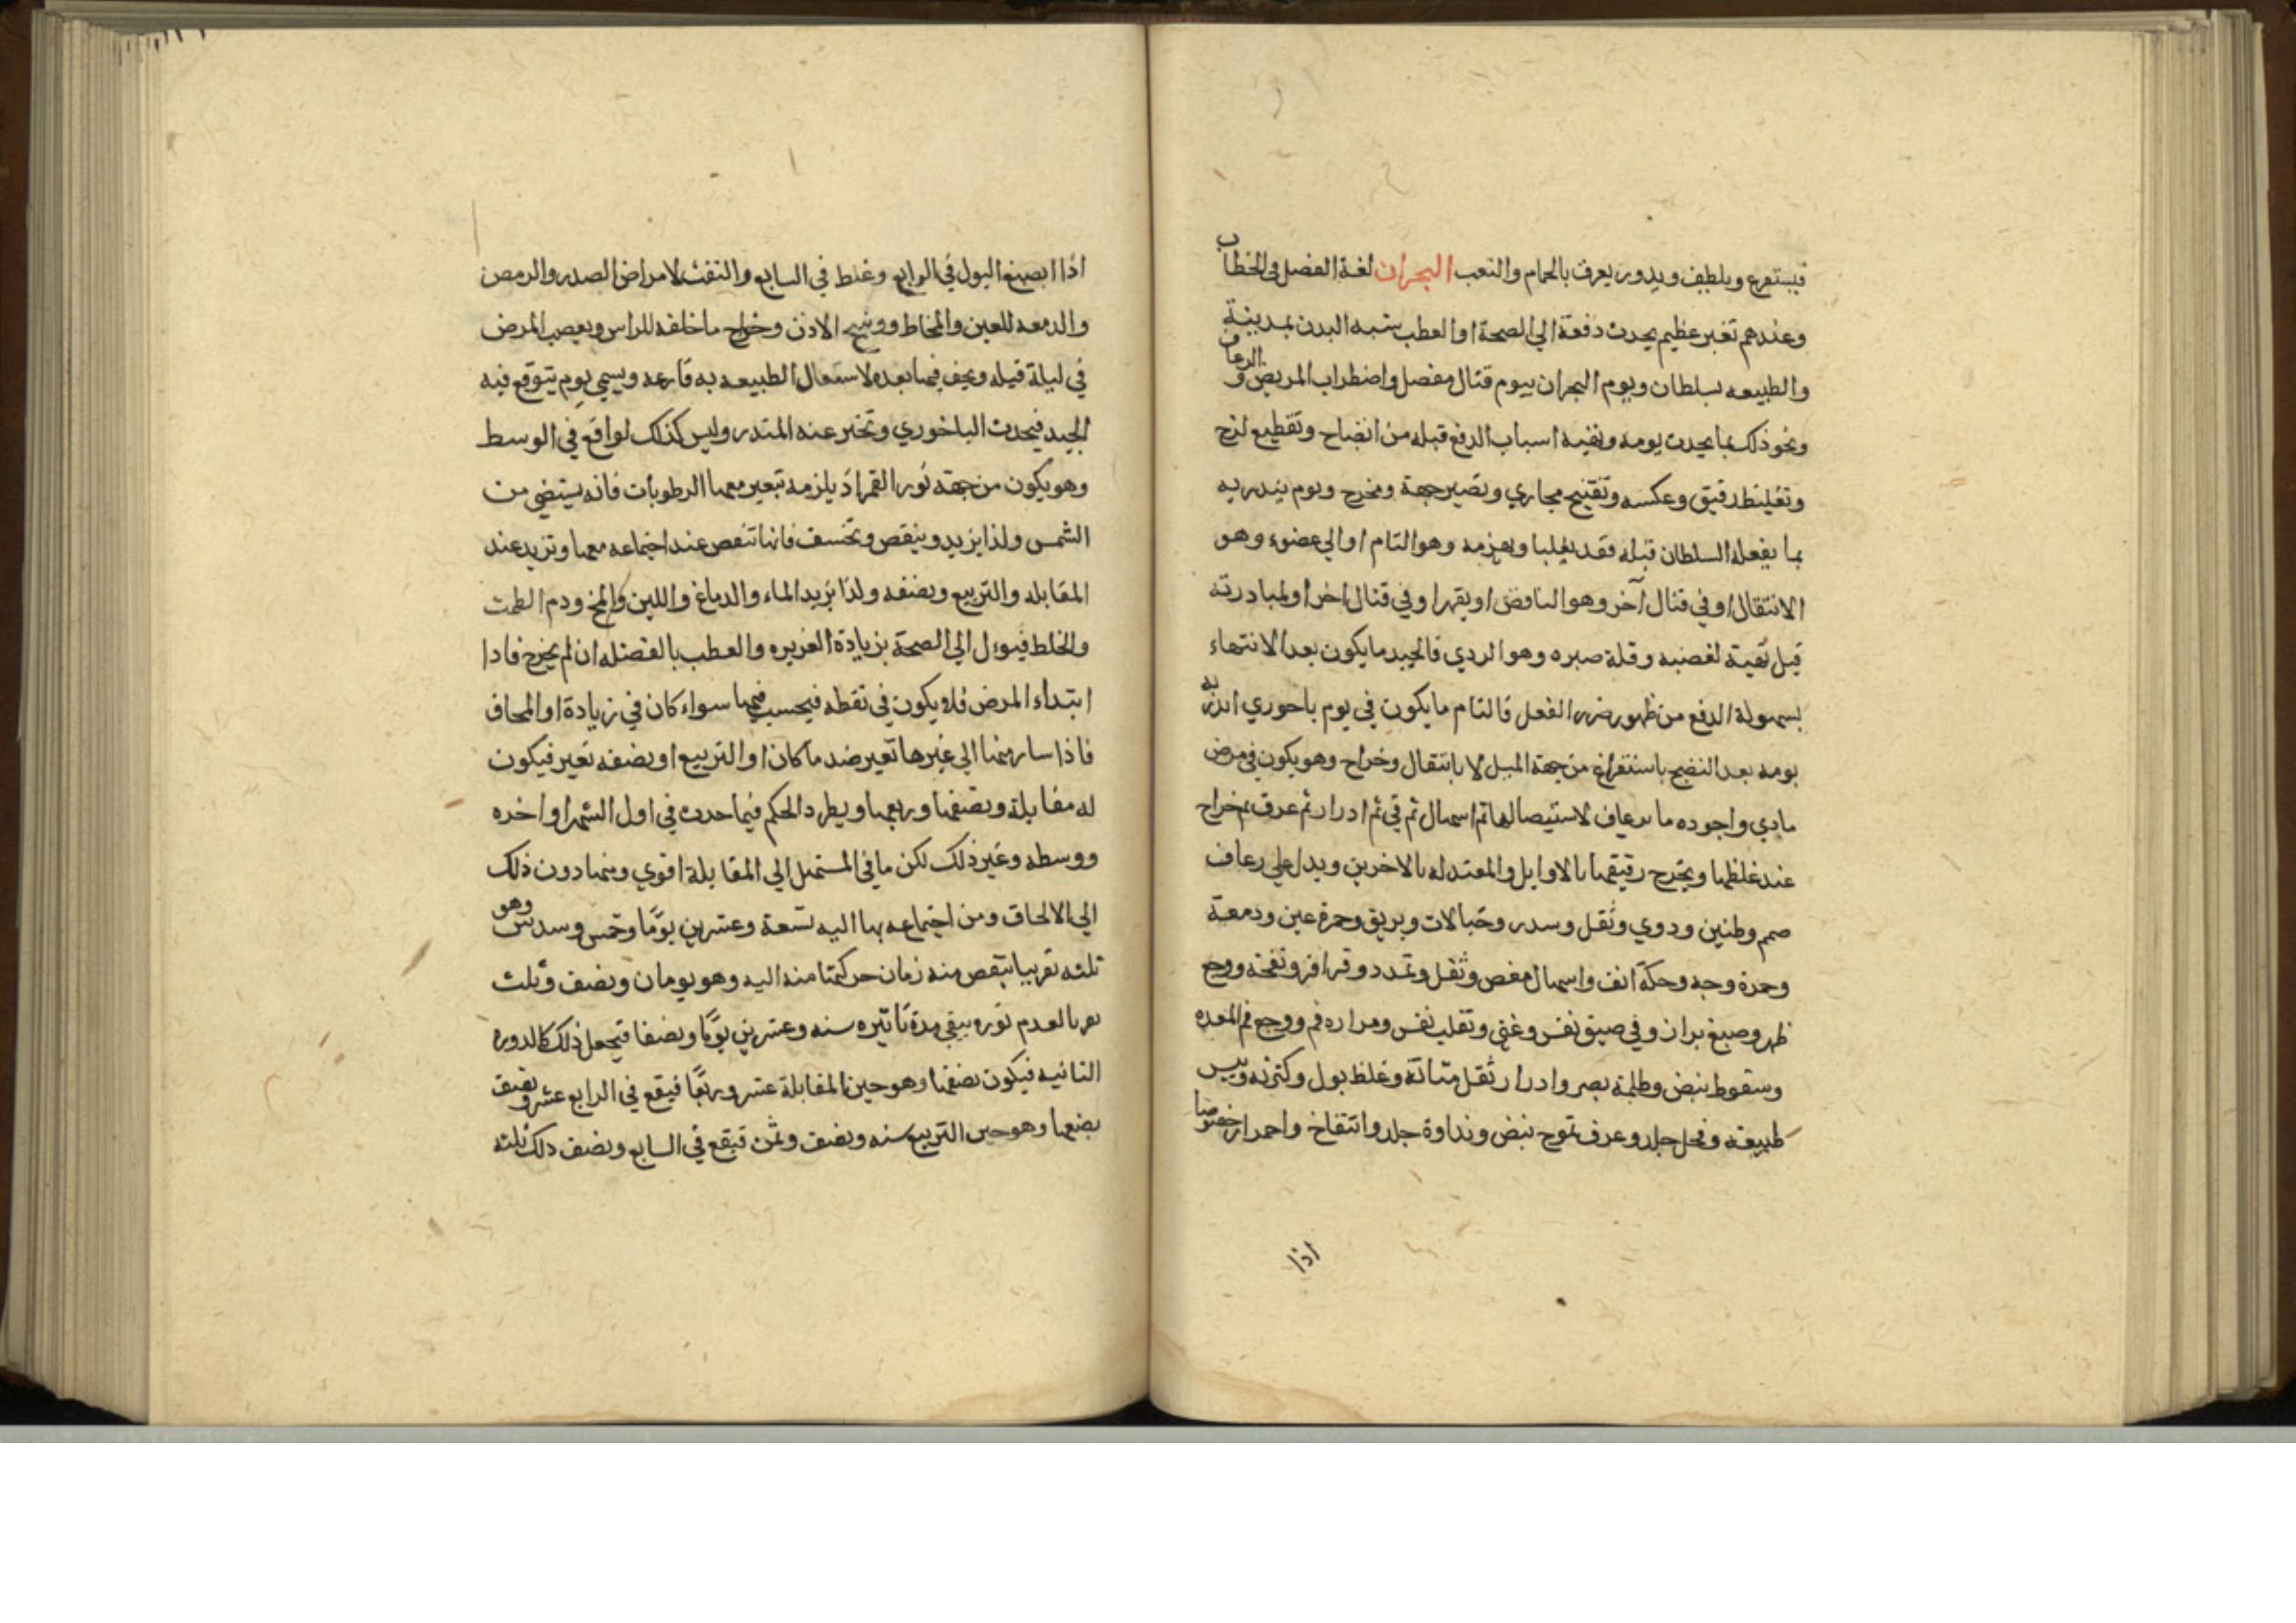 فيستفرغ ويلطف ويدور يعرف بالحمام والتعب البحران لغة الفصل في الخطاب
وعندهم تغير عظيم يحدث دفعة الي الصحة او العطب يشبه البدن بمدينة
والطبيعه بسلطان ويوم البحران بيوم قتال مفصل واضطراب المريض والرعاف
ونحو ذلك بما يحدث يومه وبقيه اسباب الدفع قبله من انضاج وتقطيع لزج
وتغليظ رقيق وعكسه وتفتيح مجاري وتصير جهة ومخرج ويوم ينذر به
بما يفعله السلطان قبله فقد يغلبا ويهزمه وهو التام او الي عضو وهو
الانتقال او في قتال آخر وهو الناقص او يقهر او في قتال اخر او لمبادرته
قبل تعبية لغضبه وقلة صبره وهو الردي فالجيد ما يكون بعد الانتهاء
بسهولة الدفع من ظهور ضرر الفعل فالتام ما يكون في يوم باحوري انذر به
يومه بعد النضج باستفراغ من جهة الميل لا بانتقال وخراج وهو يكون في مرض
مادي واجوده ما برعاف لاستيصالها ثم اسهال ثم قي ثم ادرار ثم عرق ثم خراج
عند غلظها ويخرج رقيقها بالاوايل والمعتدله بالاخرين ويدل علي رعاف
صمم وطنين ودوي وثقل وسدر وخيالات وبريق وحمرة عين ودمعة
وحمرة وجه وحكة انف واسهال مغص وثقل وتمدد وقراقر ونفخة ووجع
ظهر وصبغ براز وفي ضيق نفس وغثي وتقلب نفس ومراره فم ووجع فم المعده
وسقوط نبض وظلمة بصر وادرار ثقل مثانة وغلظ بول وكثرته ويبس
طبيعة جلد وعرق تموج نبض ونداوة جلد وانتفاخ واحمرار خصوصا
اذا
اذا انصبغ البول في الرابع وغلظ في السابع والنفث لامراض الصدر والرمص
والدمعه للعين والمخاط ووسخ الاذن وخراج ما خلفه للراس ويصعب المرض
في ليلة قبله ويخف فيما بعده لاشتغال الطبيعه به قارعه ويسمي يوم يتوقع فيه
الجيد فيحدث الباحوري وتخبر عنه المنذر وليس كذلك لواقع في الوسط
وهو يكون من جهة نور القمر اذ يلزمه تغير معها الرطوبات فانه يستضي من
الشمس ولذا يزيد وينقص وتخسف فانها تنقص عند اجتماعه معها وتزيد عند
المقابله والتربيع ونصفه ولذا يزيد الماء والدماغ واللبن والمخ ودم الطمث
والخلط فيوول الي الصحة بزيادة الغزيره والعطب بالفضله ان لم يخرج فاذا
ابتداء المرض فلا يكون في نقطه فيحسب فيها سواء كان في زيادة او المحاق
فاذا سار منها الي غيرها تغير ضد ما كان او التربيع او نصفه تغير فيكون
له مقابلة ونصفها وربعها ويطرد الحكم فيما حدث في اول الشهر او اخره
ووسطه وغير ذلك لكن ما في المستهل الي المقابلة اقوي ومنها دون ذلك
الي الالحاق ومن اجتماعه بها اليه تسعة وعشرين يوما وخمس وسدس وهو
ثلثه تقريبا ينقص منه زمان حركتها منه اليه وهو يومان ونصف وثلث
لعدم نوره يبقي مدة تاثيره سته وعشرين يوما ونصفا فيجعل ذلك كالدوره
الثانيه فيكون نصفها وهو حين المقابلة عشر وربعا فيقع في الرابع عشر ونصف
نصفها وهو حين التربيع سته ونصف وثمن فيقع في السابع ونصف ذلك ثلثه